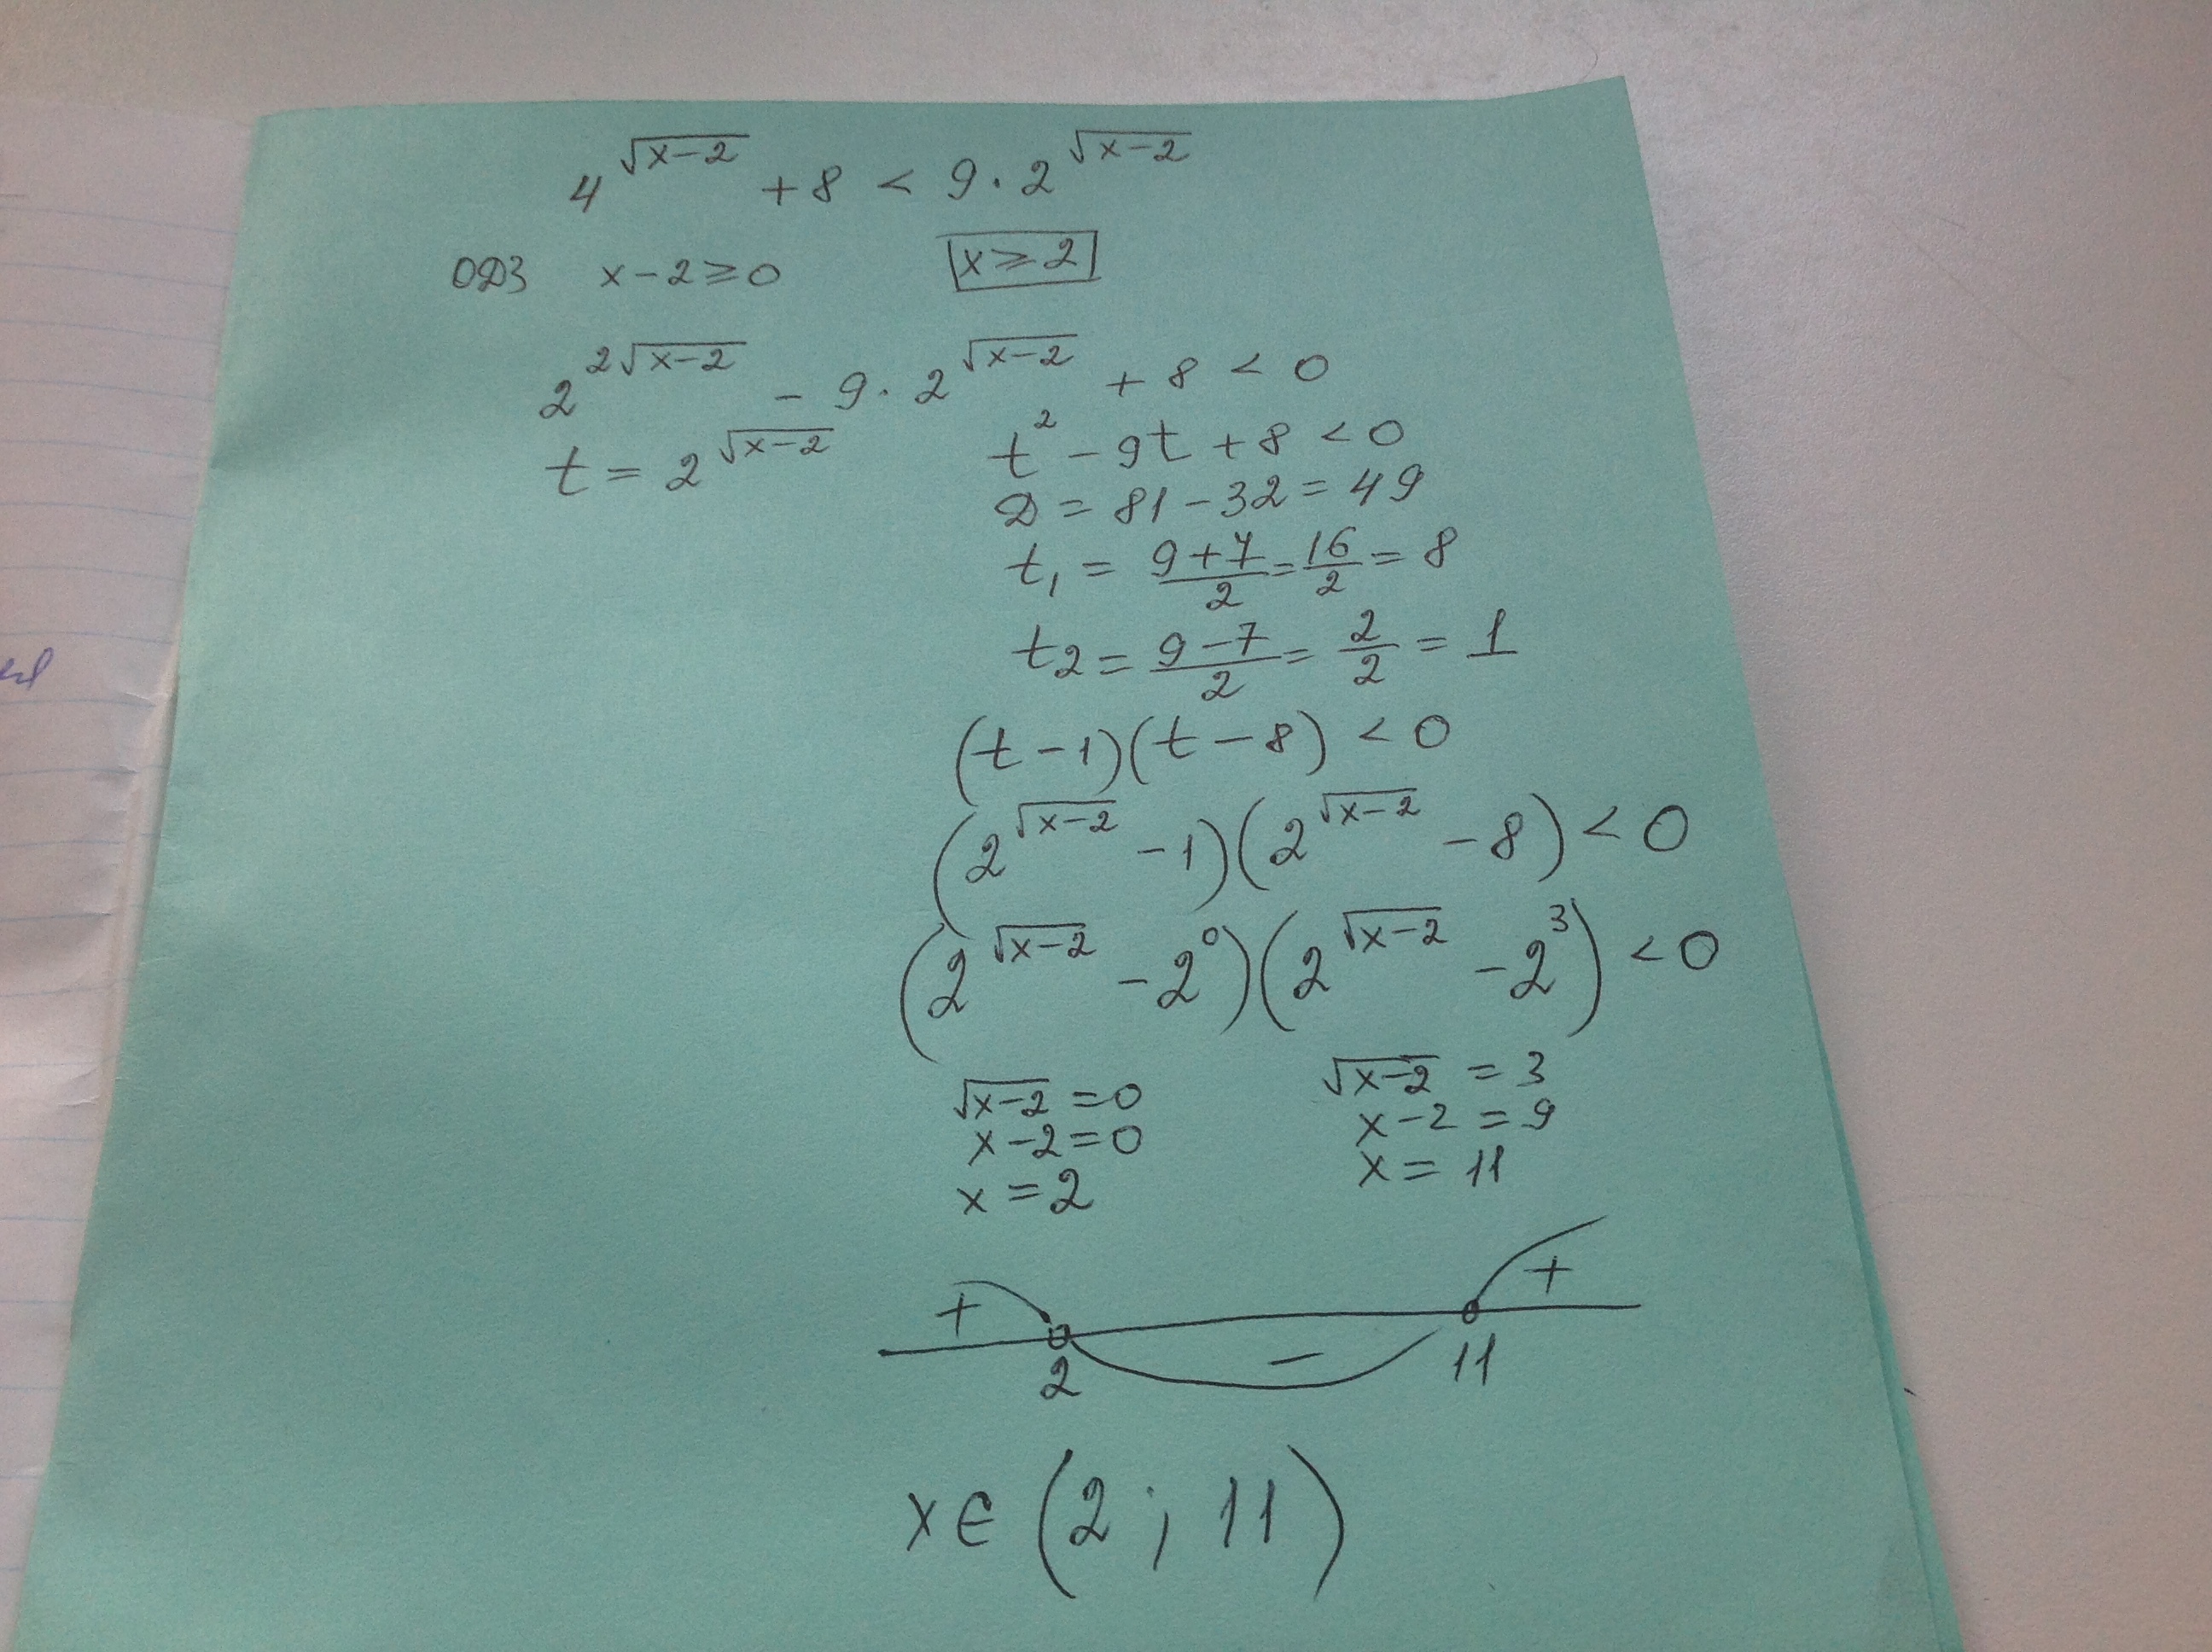 4^√(x-2) + 8 < 9 · 2^√(x-2)
ОДЗ x - 2 ≥ 0 x ≥ 2
2^(2√(x-2)) - 9 · 2^√(x-2) + 8 < 0
t = 2^√(x-2) t² - 9t + 8 < 0
D = 81 - 32 = 49
t₁ = (9+7)/2 = 16/2 = 8
t₂ = (9-7)/2 = 2/2 = 1
(t - 1)(t - 8) < 0
(2^√(x-2) - 1)(2^√(x-2) - 8) < 0
(2^√(x-2) - 2⁰)(2^√(x-2) - 2³) < 0
√(x-2) = 0 √(x-2) = 3
x - 2 = 0 x - 2 = 9
x = 2 x = 11
+ - +
2 11
x ∈ (2 ; 11)